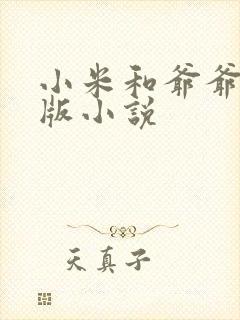 小米和爷爷
版小说
天真子